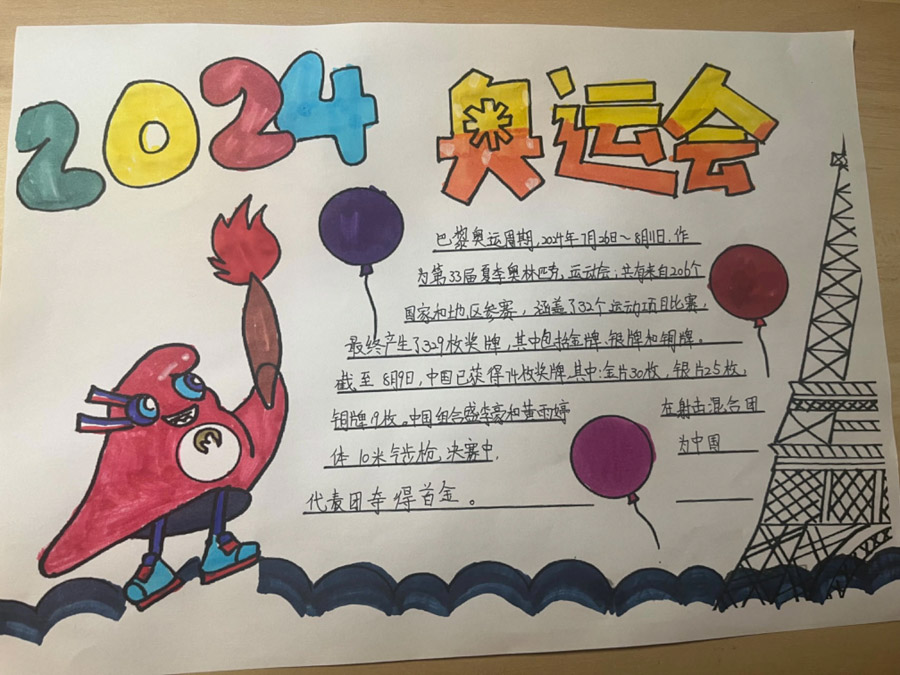 2024 奥运会
巴黎奥运周期,2024年7月26日~8月11日.作
为第33届夏季奥林匹克运动会,共有来自206个
国家和地区参赛,涵盖了32个运动项目比赛,
最终产生了329枚奖牌,其中包括金牌、银牌和铜牌。
截至8月9日,中国已获得74枚奖牌.其中:金片30枚,银片25枚,
铜牌19枚。中国组合盛李豪和黄雨婷 在射击混合团
体10米气步枪,决赛中, 为中国
代表团夺得首金。